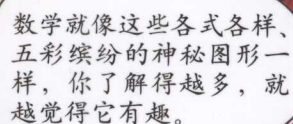 数学就像这些各式各样、
五彩缤纷的神秘图形一
样，你了解得越多，就
越觉得它有趣。